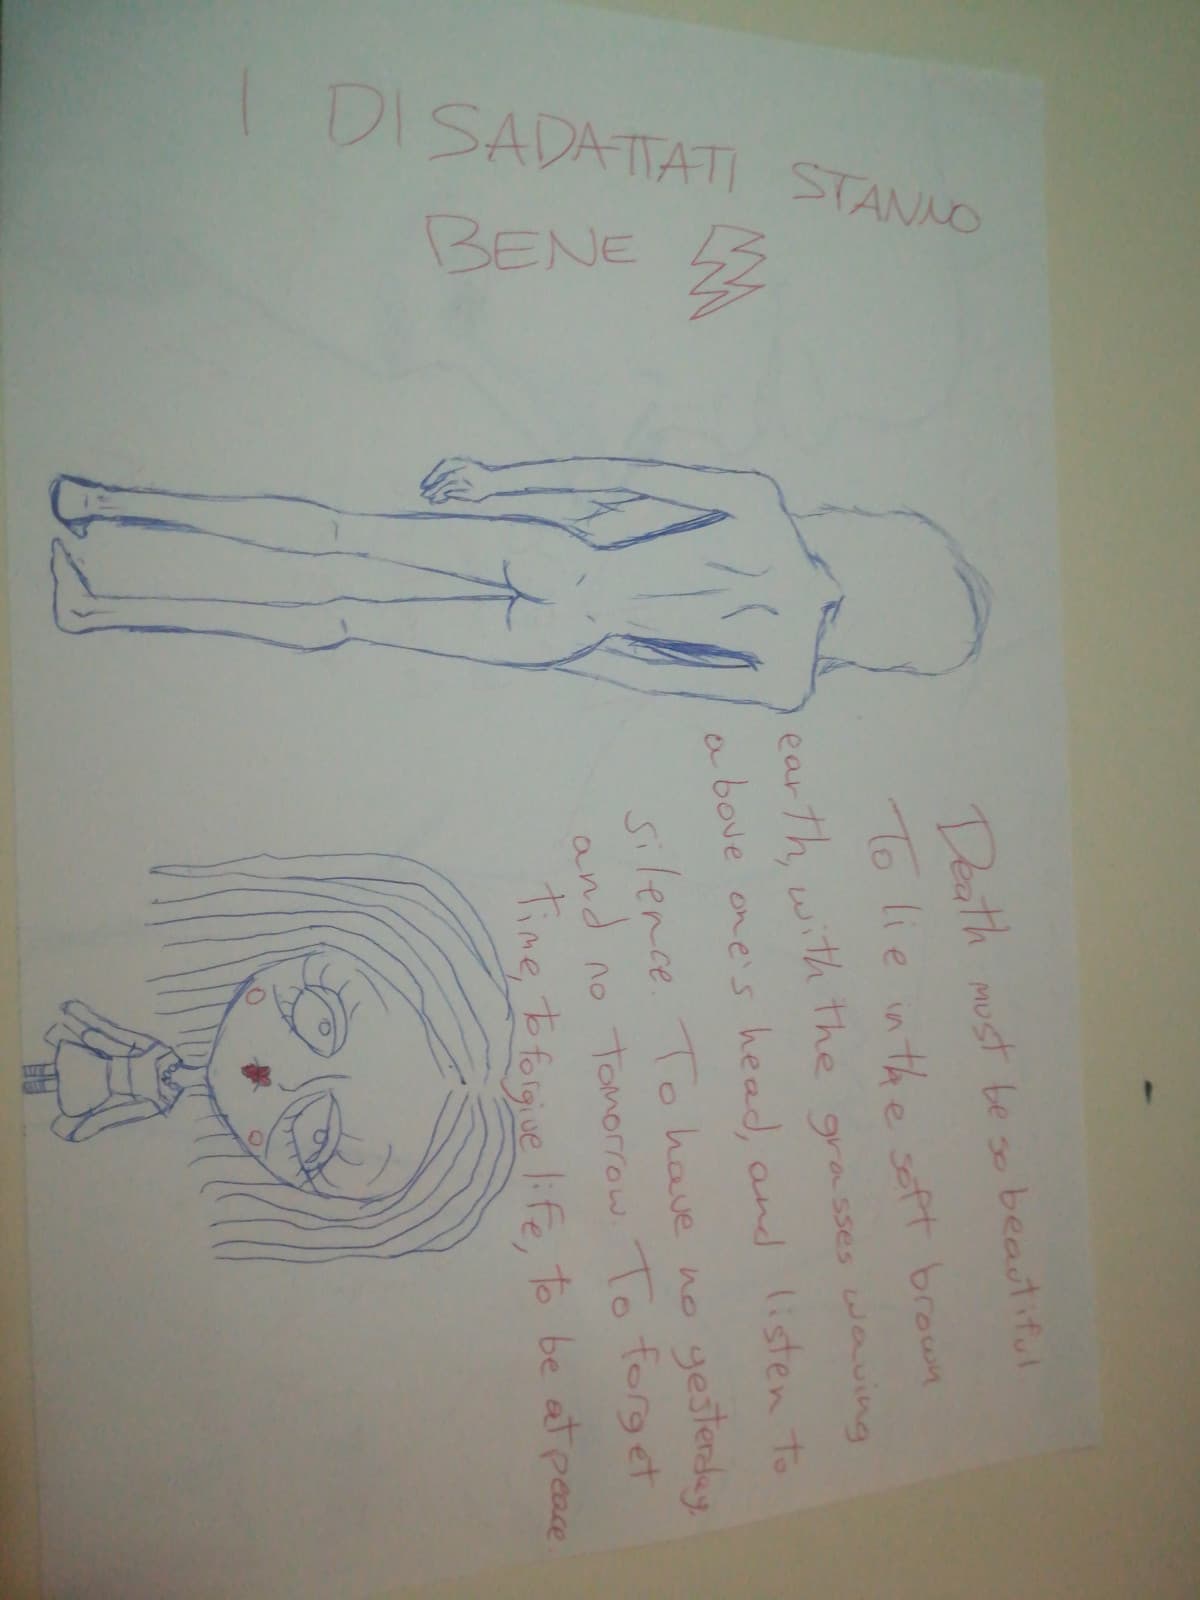 I DISADATTATI STANNO
BENE
Death must be so beautiful
To lie in the soft brown
earth, with the grasses waving
above one's head, and listen to
silence. To have no yesterday,
and no tomorrow. To forget
time, to forgive life, to be at peace.